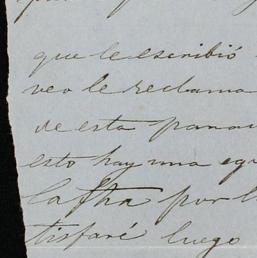 que le escribió
veo le reclama
de esta
esto hay una
la fha por l
tisfaré luego